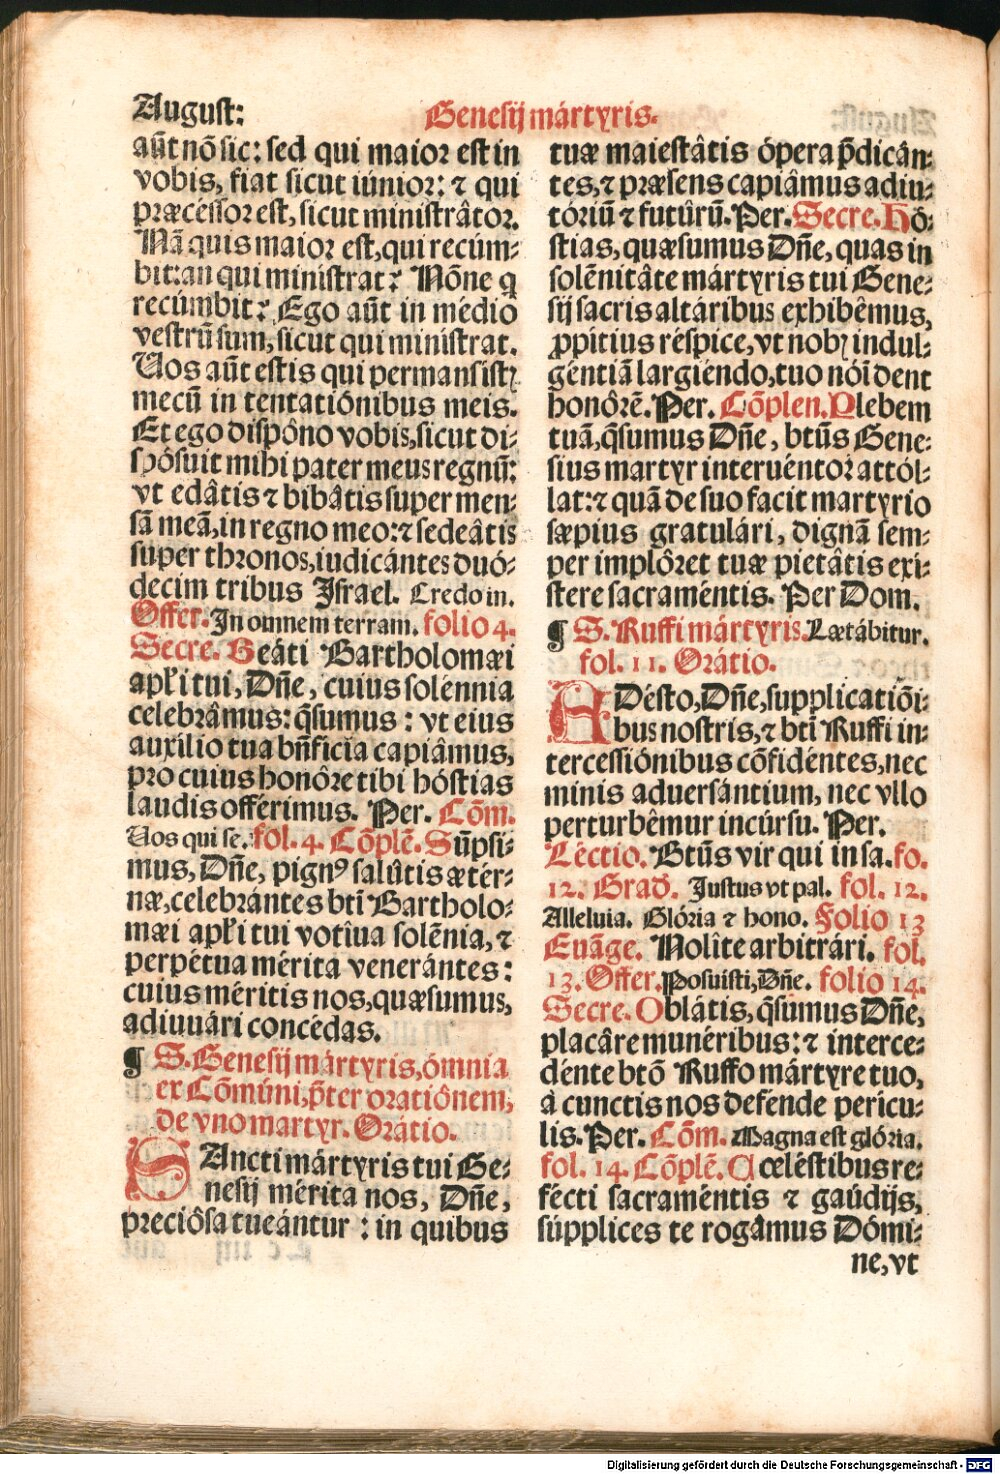 August:
Genesij mártyris.
aūt nō sic: sed qui maior est in
vobis, fiat sicut iúnior: ⁊ qui
præcessor est, sicut ministrâtor.
Nā quis maior est, qui recúm-
bit: an qui ministrat? Nōne q̄
recúmbit? Ego aūt in médio
vestrū sum, sicut qui ministrat.
Vos aūt estis qui permansistꝭ
mecū in tentatiónibus meis.
Et ego dispóno vobis, sicut di-
spósuit mihi pater meus regnū:
vt edâtis ⁊ bibâtis super men-
sā meā, in regno meo: ⁊ sedeâtis
super thronos, iudicántes duó-
decim tribus Israel. Credo in.
Offer. In omnem terram. folio 4.
Secre. Beáti Bartholomæi
apłi tui, Dñe, cuius solénnia
celebrâmus: q̄sumus: vt eius
auxílio tua bñfícia capiâmus,
pro cuius honôre tibi hóstias
laudis offérimus. Per. Cōm.
Vos qui se. fol. 4. Cōplē. Sūpsi-
mus, Dñe, pignꝰ salûtis ætér-
næ, celebrántes btī Bartholo-
mæi apłi tui votîua solēnia, ⁊
perpétua mérita veneránt es:
cuius méritis nos, quæsumus,
adiuuári concédas.
¶ S. Genesij mártyris, ómnia
ex Cōmúni, p̄ter oratiônem,
de vno martyr. Orátio.
SAncti mártyris tui Ge-
nesij mérita nos, Dñe,
preciôsa tueántur: in quibus
tuæ maiestâtis ópera p̄dicán-
tes, ⁊ præsens capiâmus adiu-
tóriū ⁊ futûrū. Per. Secre. Hó-
stias, quæsumus Dñe, quas in
solēnitâte mártyris tui Gene-
sij sacris altáribus exhibêmus,
ꝓpítius réspice, vt nobꝭ indul-
géntiā largiéndo, tuo nóī dent
honôrē. Per. Cōplen. Plebem
tuā, q̄sumus Dñe, btūs Gene-
sius martyr interuéntor attól-
lat: ⁊ quā de suo facit martyrio
sæpius gratulári, dignā sem-
per implôret tuæ pietâtis exi-
stere sacraméntis. Per Dom.
¶ S. Ruffi mártyris. Lætábitur.
fol. 11. Orátio.
ADesto, Dñe, supplicatiōi-
bus nostris, ⁊ btī Ruffi in-
tercessiónibus cōfidéntes, nec
minis aduersántium, nec vllo
perturbêmur incúrsu. Per.
Léctio. Btūs vir qui in sa. fo.
12. Grad. Justus vt pal. fol. 12.
Alleluia. Glória ⁊ hono. Folio 13
Euāge. Nolîte arbitrári. fol.
13. Offer. Posuisti, Dñe. folio 14.
Secre. Oblátis, q̄sumus Dñe,
placâre munéribus: ⁊ interce-
dénte btō Ruffo mártyre tuo,
â cunctis nos defende pericu-
lis. Per. Cōm. Magna est glória.
fol. 14. Cōplē. Cœléstibus re-
fécti sacraméntis ⁊ gaúdijs,
súpplices te rogâmus Dómi-
ne, vt
Digitalisierung gefördert durch die Deutsche Forschungsgemeinschaft - DFG